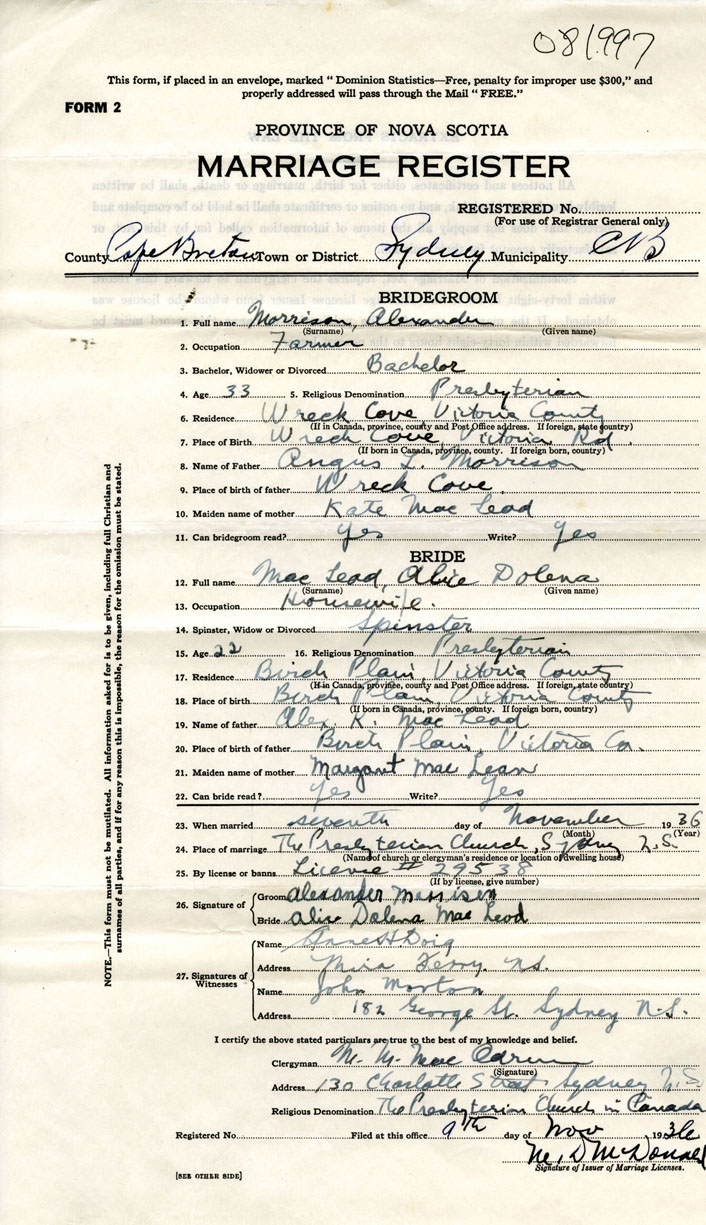 081997
This form, if placed in an envelope, marked “ Dominion Statistics—Free, penalty for improper use $300,” and
properly addressed will pass through the Mail “ FREE.”
FORM 2
PROVINCE OF NOVA SCOTIA
MARRIAGE REGISTER
REGISTERED No.
(For use of Registrar General only)
County Cape Breton Town or District Sydney Municipality CB
BRIDEGROOM
1. Full name Morrison, Alexander
(Surname) (Given name)
2. Occupation Farmer
3. Bachelor, Widower or Divorced Bachelor
4. Age 33 5. Religious Denomination Presbyterian
6. Residence Wreck Cove Victoria County
(If in Canada, province, county and Post Office address. If foreign, state country)
7. Place of Birth Wreck Cove, Victoria
(If born in Canada, province, county. If foreign born, country)
8. Name of Father Angus L. Morrison
9. Place of birth of father Wreck Cove
10. Maiden name of mother Kate Mac Leod
11. Can bridegroom read? Yes Write? Yes
BRIDE
12. Full name Mac Leod, Alice Dolena
(Surname) (Given name)
13. Occupation Housewife.
14. Spinster, Widow or Divorced Spinster
15. Age 22 16. Religious Denomination Presbyterian
17. Residence Birch Plain, Victoria County
(If in Canada, province, county and Post Office address. If foreign, state country)
18. Place of birth Birch Plain, Victoria County
(If born in Canada, province, county. If foreign born, country)
19. Name of father Alex. K. Mac Leod
20. Place of birth of father Birch Plain, Victoria Co.
21. Maiden name of mother Margaret Mac Lean
22. Can bride read? Yes Write? Yes
23. When married seventh day of November 1936
(Month) (Year)
24. Place of marriage The Presbyterian Church, Sydney N.S.
(Name of church or clergyman's residence or location of dwelling house)
25. By license or banns License # 29538
(If by license, give number)
26. Signature of Groom Alexander Morrison
Bride Alice Dolena Mac Leod
27. Signatures of Witnesses
Name Anne H Doig
Address Mira Ferry. N.S.
Name John Morton
Address 182 George St. Sydney N.S.
I certify the above stated particulars are true to the best of my knowledge and belief.
Clergyman M. M. Mac
(Signature)
Address 130 Charlotte Street Sydney N.S.
Religious Denomination The Presbyterian Church in Canada
Registered No. Filed at this office 9th day of Nov 1936
M. D McDonald
Signature of Issuer of Marriage Licenses.
[SEE OTHER SIDE]
NOTE.—This form must not be mutilated. All information asked for is to be given, including full Christian and
surnames of all parties, and if for any reason this is impossible, the reason for the omission must be stated.